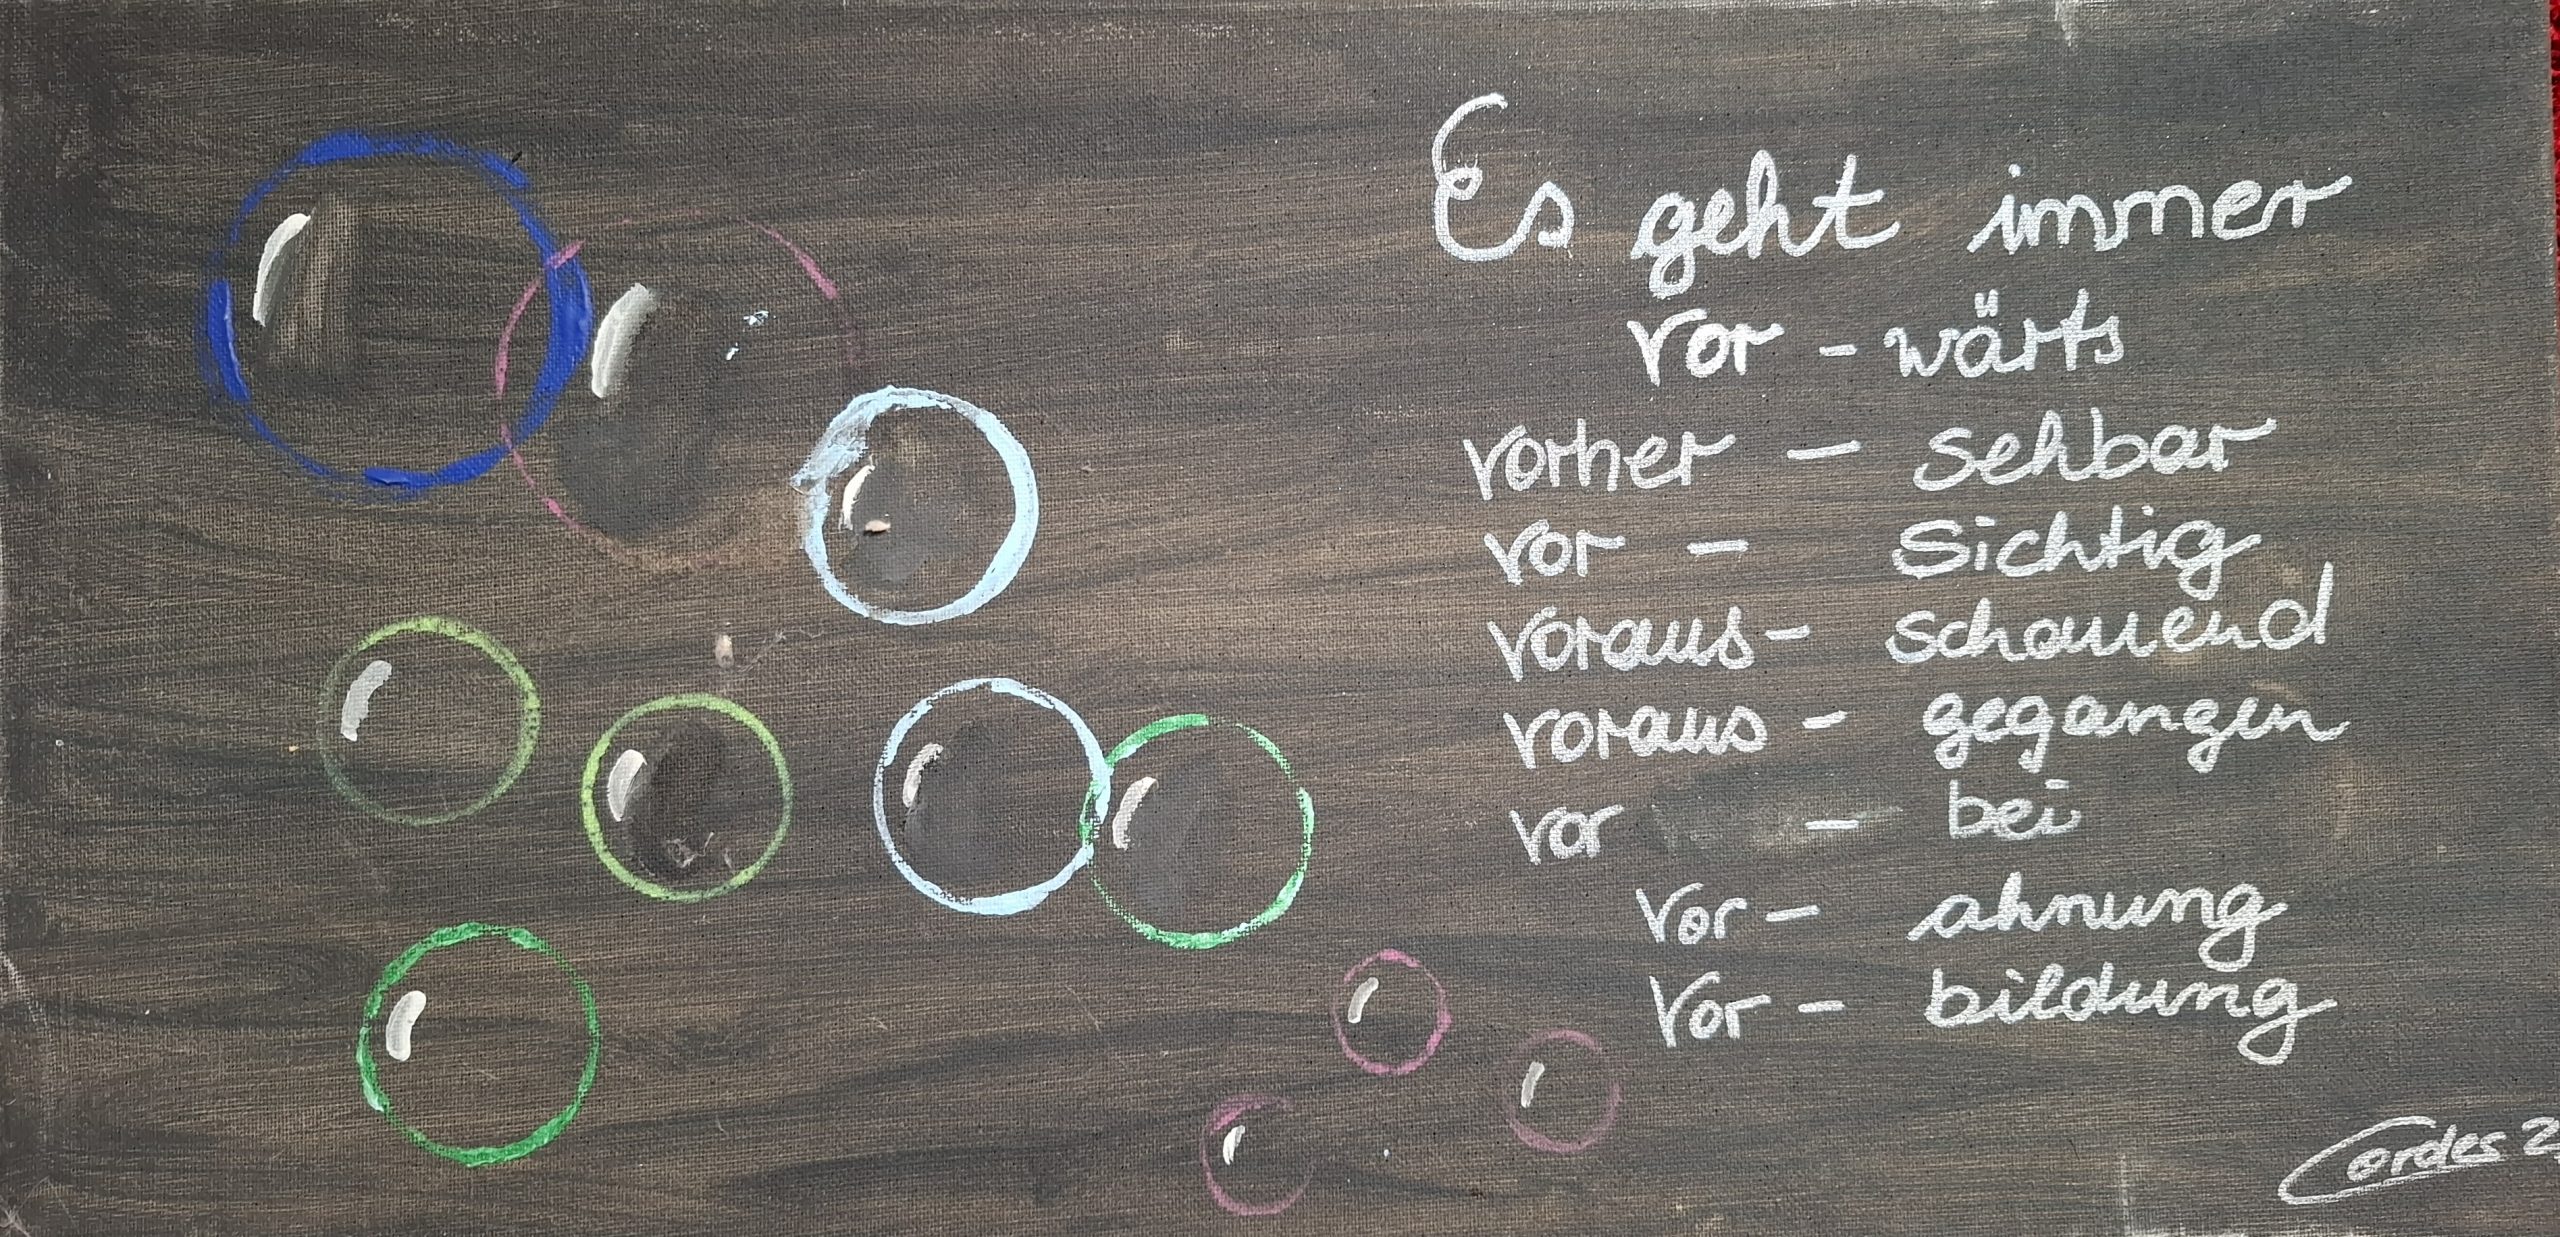 Es geht immer
vor - wärts
vorher - sehbar
vor - sichtig
voraus - schauend
voraus - gegangen
vor - bei
Vor - ahnung
Vor - bildung
Cordes 2